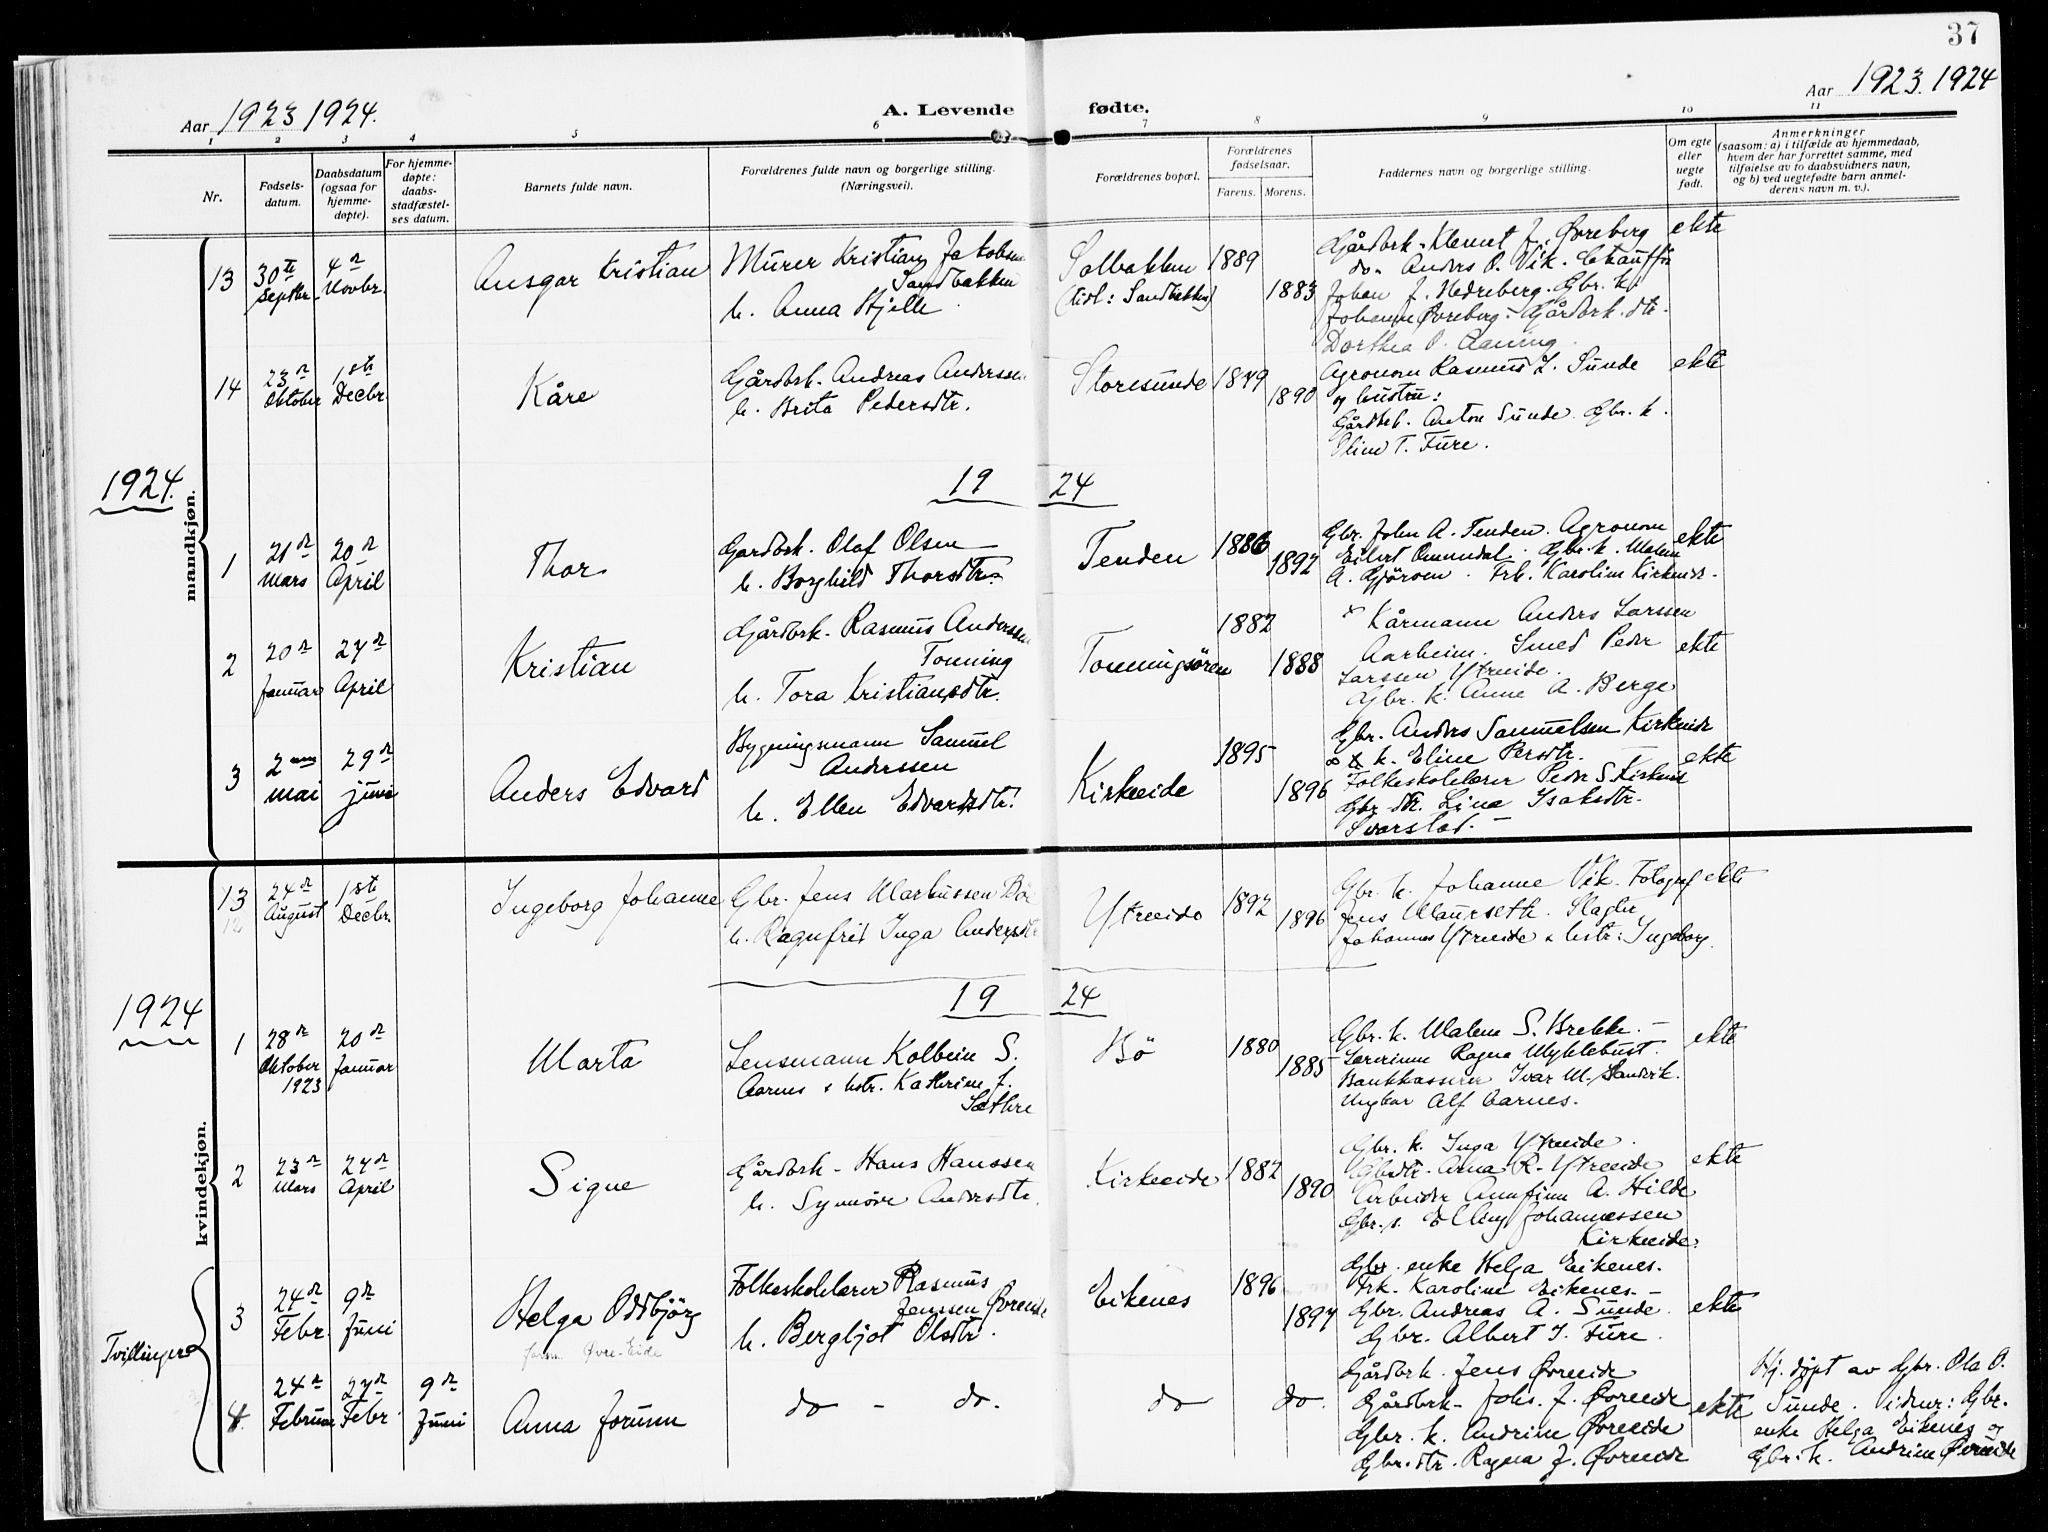 37
Aar 1923 1924.
A. Levende fødte.
Aar 1923. 1924
1 2 3 4 5 6 7 8 9 10 11
Nr.
Fødsels-
datum.
Daabsdatum
(ogsaa for
hjemme-
døpte).
For hjemme-
døpte:
daabs-
stadfæstel-
ses datum.
Barnets fulde navn.
Forældrenes fulde navn og borgerlige stilling.
(Næringsvei).
Forældrenes bopæl.
Forældrenes
fødselsaar.
Farens. Morens.
Faddernes navn og borgerlige stilling.
Om egte
eller
uegte
født.
Anmerkninger
(saasom: a) i tilfælde av hjemmedaab,
hvem der har forrettet samme, med
tilføielse av to daabsvidners navn,
og b) ved uegtefødte barn anmel-
derens navn m. v.).
mandkjøn.
13
30te
Septbr.
4de
Novbr.
Ansgar Kristian
Murer Kristian Jakobsen
Sandbakken
h. Anna Hjelle
Solbakken
(tidl: Sandbakken)
1889
1883
Gårdbrk. Klemet J. Øvreberg
do. Anders O. Vik. Chauffør
Johan J. Nedreberg. Gbr. k.
Johanne Øvreberg - Gårdbrk. dtr.
Dorthea O. Raning.
ekte
14
23de
Oktober
1ste
Decbr.
Kåre
Gårdbrk. Andreas Anderssen
h. Brita Pedersdtr.
Storesunde
1879
1890
Agronom Rasmus L. Sunde
og hustru:
Gårdbrk. Anton Sunde. Gbr. k.
Oline T. Fure.
ekte
1924.
19 24
1
21de
Mars
20de
April
Thor
Gardbrk. Olaf Olsen
h. Borghild Thorsdtr.
Tenden
1886
1892
Gbr. John A. Tenden. Agronom
Eilert Omundal. Gbr. k. Malene
A. Gjøroen. Frk. Karoline Kirkeeide.
ekte
2
20de
Januar
27de
April
Kristian
Gårdbrk. Rasmus Anderssen
Tonning
h. Tora Kristiansdtr.
Tonningsören
1882
1888
x Kårmann Anders Larssen
Aarheim. Smed Peder
Larssen Ytreeide.
Gbr. k. Anne A. Berge
ekte
3
2nen
Mai
29de
juni
Anders Edvard
Bygningsmann Samuel
Anderssen
h. Ellen Edvardsdtr.
Kirkeeide
1895
1896
Gbr. Anders Samuelsen Kirkeeide
& k. Eline Persdtr.
Folkeskolelærer Peder S. Kirkeeide
Gbr. dtr. Lina Isaksdtr.
Svarstad. -
ekte
kvindekjøn.
13
12
24de
August
1ste
Decbr.
Ingeborg Johanne
Gbr. Jens Markussen Bø
h. Ragnfrid Inga Andersdtr
Ytreeide
1892
1896
Gbr. k. Johanne Vik. Fotograf
Jens Maurseth. Slagter
Johannes Ytreeide & hstr: Ingeborg.
ekte
1924
19 24
1
28de
Oktober
1923
20de
Januar
Marta
Lensmann Kolbein S.
Aarnes & hstr. Kathrine J.
Sæthre
Bö
1880
1885
Gbr. k. Malene S. Brekke. -
Lærerinne Ragna Myklebust.
Bankkasserer Ivar M. Sandvik.
Ungkar Alf Aarnes.
ekte
2
23de
Mars
27de
April
Signe
Gårdbrk - Hans Hanssen
h. Synnøve Andersdtr.
Kirkeeide
1882
1890
Gbr. k. Inga Ytreeide.
Gbrdtr. Anna R. Ytreeide
Arbeider Annfinn A. Hilde
Gbr. s. Elling Johannessen
Kirkeeide.
ekte
Tvillinger
3
24de
Febr.
9de
Juni
Helga Oddbjörg
Øvre-Eide
Folkeskolelærer Rasmus
Jenssen Øvreeide
h. Bergljot Olsdtr.
Eikenes
1896
1897
Gbr. enke Helga Eikenes.
Frk. Karoline Eikenes. -
Gbr. Andreas A. Sunde.
Gbr. Albert J. Fure.
ekte
4.
24de
Februar
27de
Febr.
9de
Juni
Anna Jorunn
do - do.
do
do.
Gårdbrk. Jens Øvreeide
Gårdbrk. Johs. J. Øvreeide
Gbr. k. Andrine Øvreeide
Gbr. dtr. Ragna J. Øvreeide
ekte
Hj. døpt av Gbr. Ola O.
Sunde. Vidner: Gbr.
enke Helga Eikenes og
Gbr. k. Andrine Øvreeide